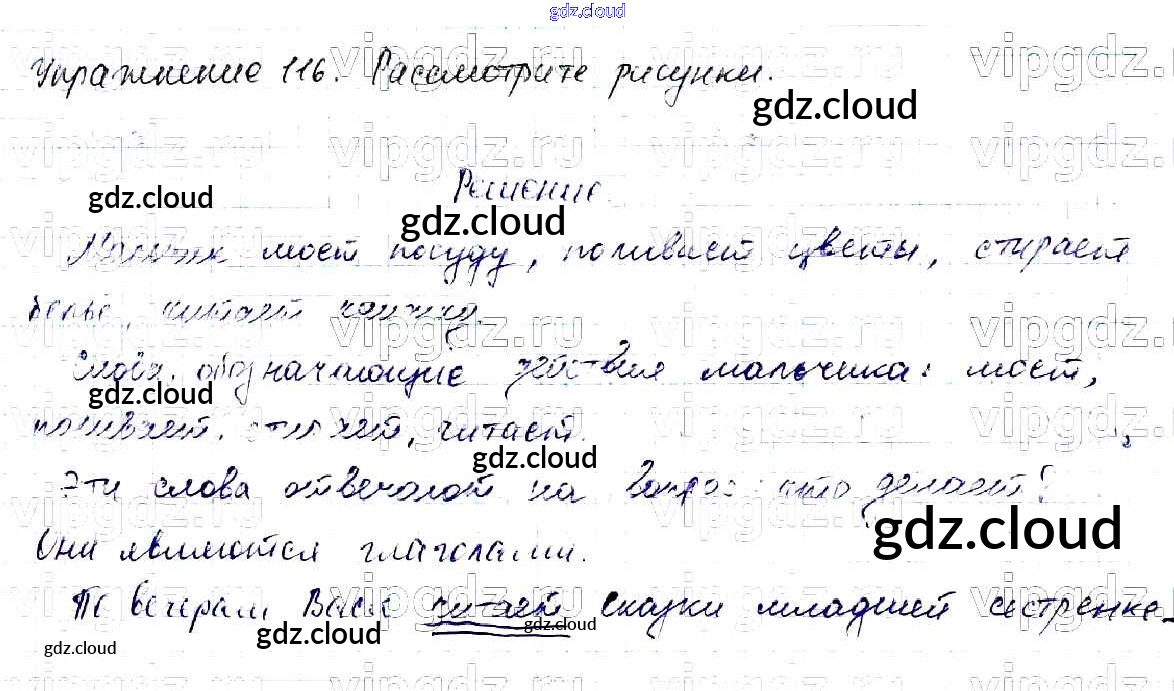 gdz.cloud
Упражнение 116. Рассмотрите рисунки.
gdz.cloud
vipgdz.ru vipgdz.ru vipgdz.ru vipgdz.ru
Решение.
gdz.cloud
gdz.cloud
Мальчик моет посуду, поливает цветы, стирает
белье, читает книжку.
Слова, обозначающие действия мальчика: моет,
gdz.cloud
поливает, стирает, читает.
gdz.cloud
Эти слова отвечают на вопрос: что делает?
gdz.cloud
Они являются глаголами.
По вечерам Вася читает сказки младшей сестренке.
gdz.cloud
gdz.cloud
gdz.cloud